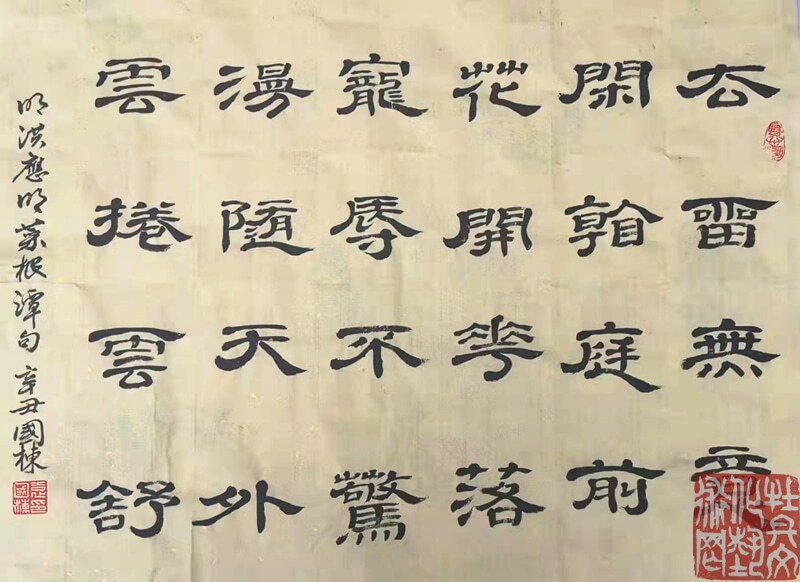 去留無意
閑看庭前
花開花落
寵辱不驚
漫隨天外
雲捲雲舒
明洪應明菜根譚句 辛丑國棟